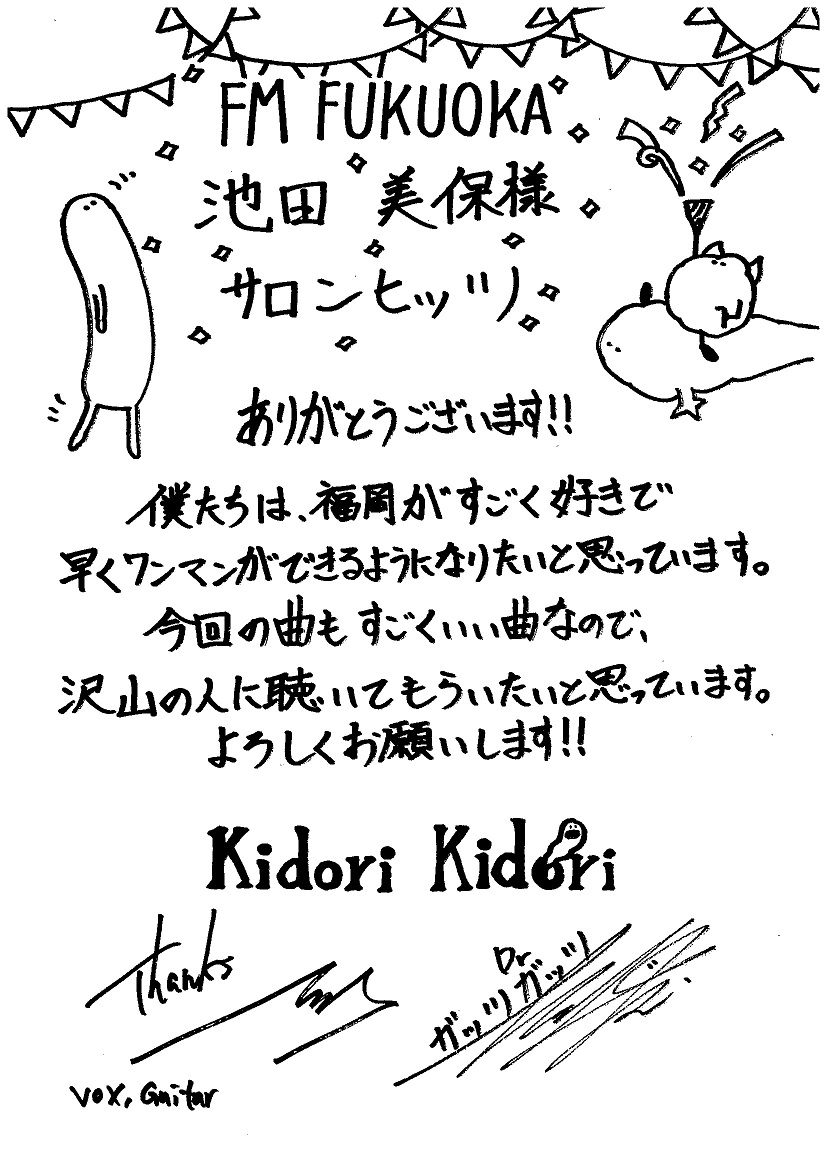 FM FUKUOKA
池田 美保様
サロンヒッツ
ありがとうございます!!
僕たちは、福岡がすごく好きで
早くワンマンができるようになりたいと思っています。
今回の曲もすごくいい曲なので、
沢山の人に聴いてもらいたいと思っています。
よろしくお願いします!!
Kidori Kidori
Thanks
Vox, Guitar
Dr
ガッツガッツ